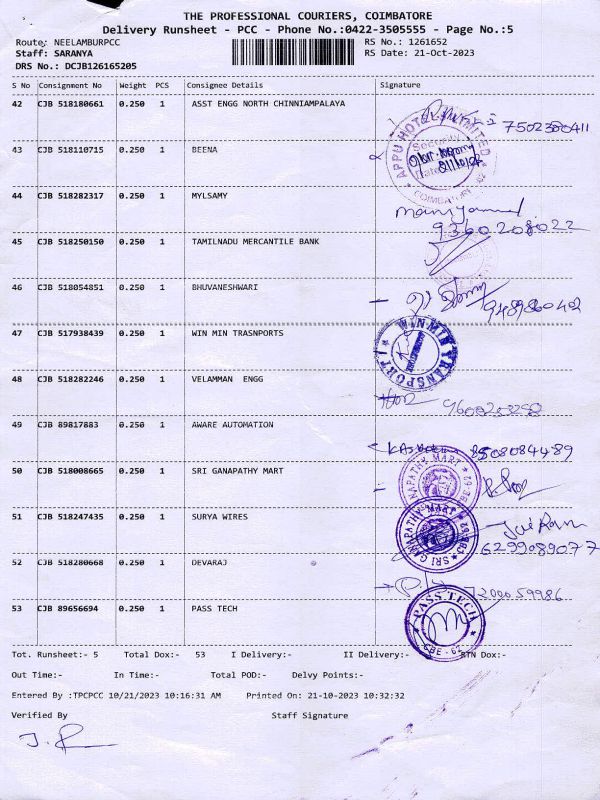 THE PROFESSIONAL COURIERS, COIMBATORE
Delivery Runsheet - PCC - Phone No.:0422-3505555 - Page No.:5
Route: NEELAMBURPCC RS No.: 1261652
Staff: SARANYA RS Date: 21-Oct-2023
DRS No.: DCJB126165205
S No Consignment No Weight PCS Consignee Details Signature
42 CJB 518180661 0.250 1 ASST ENGG NORTH CHINNIAMPALAYA
7502380411
APPU HOTEL LIMITED
Security
Date
COIMBATORE
43 CJB 518110715 0.250 1 BEENA
44 CJB 518282317 0.250 1 MYLSAMY
9360208022
45 CJB 518250150 0.250 1 TAMILNADU MERCANTILE BANK
46 CJB 518054851 0.250 1 BHUVANESHWARI
9489860402
47 CJB 517938439 0.250 1 WIN MIN TRASNPORTS
WINMIN TRANSPORT
48 CJB 518282246 0.250 1 VELAMMAN ENGG
9600253298
49 CJB 89817883 0.250 1 AWARE AUTOMATION
8508084489
50 CJB 518008665 0.250 1 SRI GANAPATHY MART
GANAPATHY MART
51 CJB 518247435 0.250 1 SURYA WIRES
SRI GANAPATHY MART
Jai Ram
6299089077
52 CJB 518280668 0.250 1 DEVARAJ
7200059986
53 CJB 89656694 0.250 1 PASS TECH
PASS TECH
CBE - 62
Tot. Runsheet:- 5 Total Dox:- 53 I Delivery:- II Delivery:- RTN Dox:-
Out Time:- In Time:- Total POD:- Delvy Points:-
Entered By :TPCPCC 10/21/2023 10:16:31 AM Printed On: 21-10-2023 10:32:32
Verified By Staff Signature